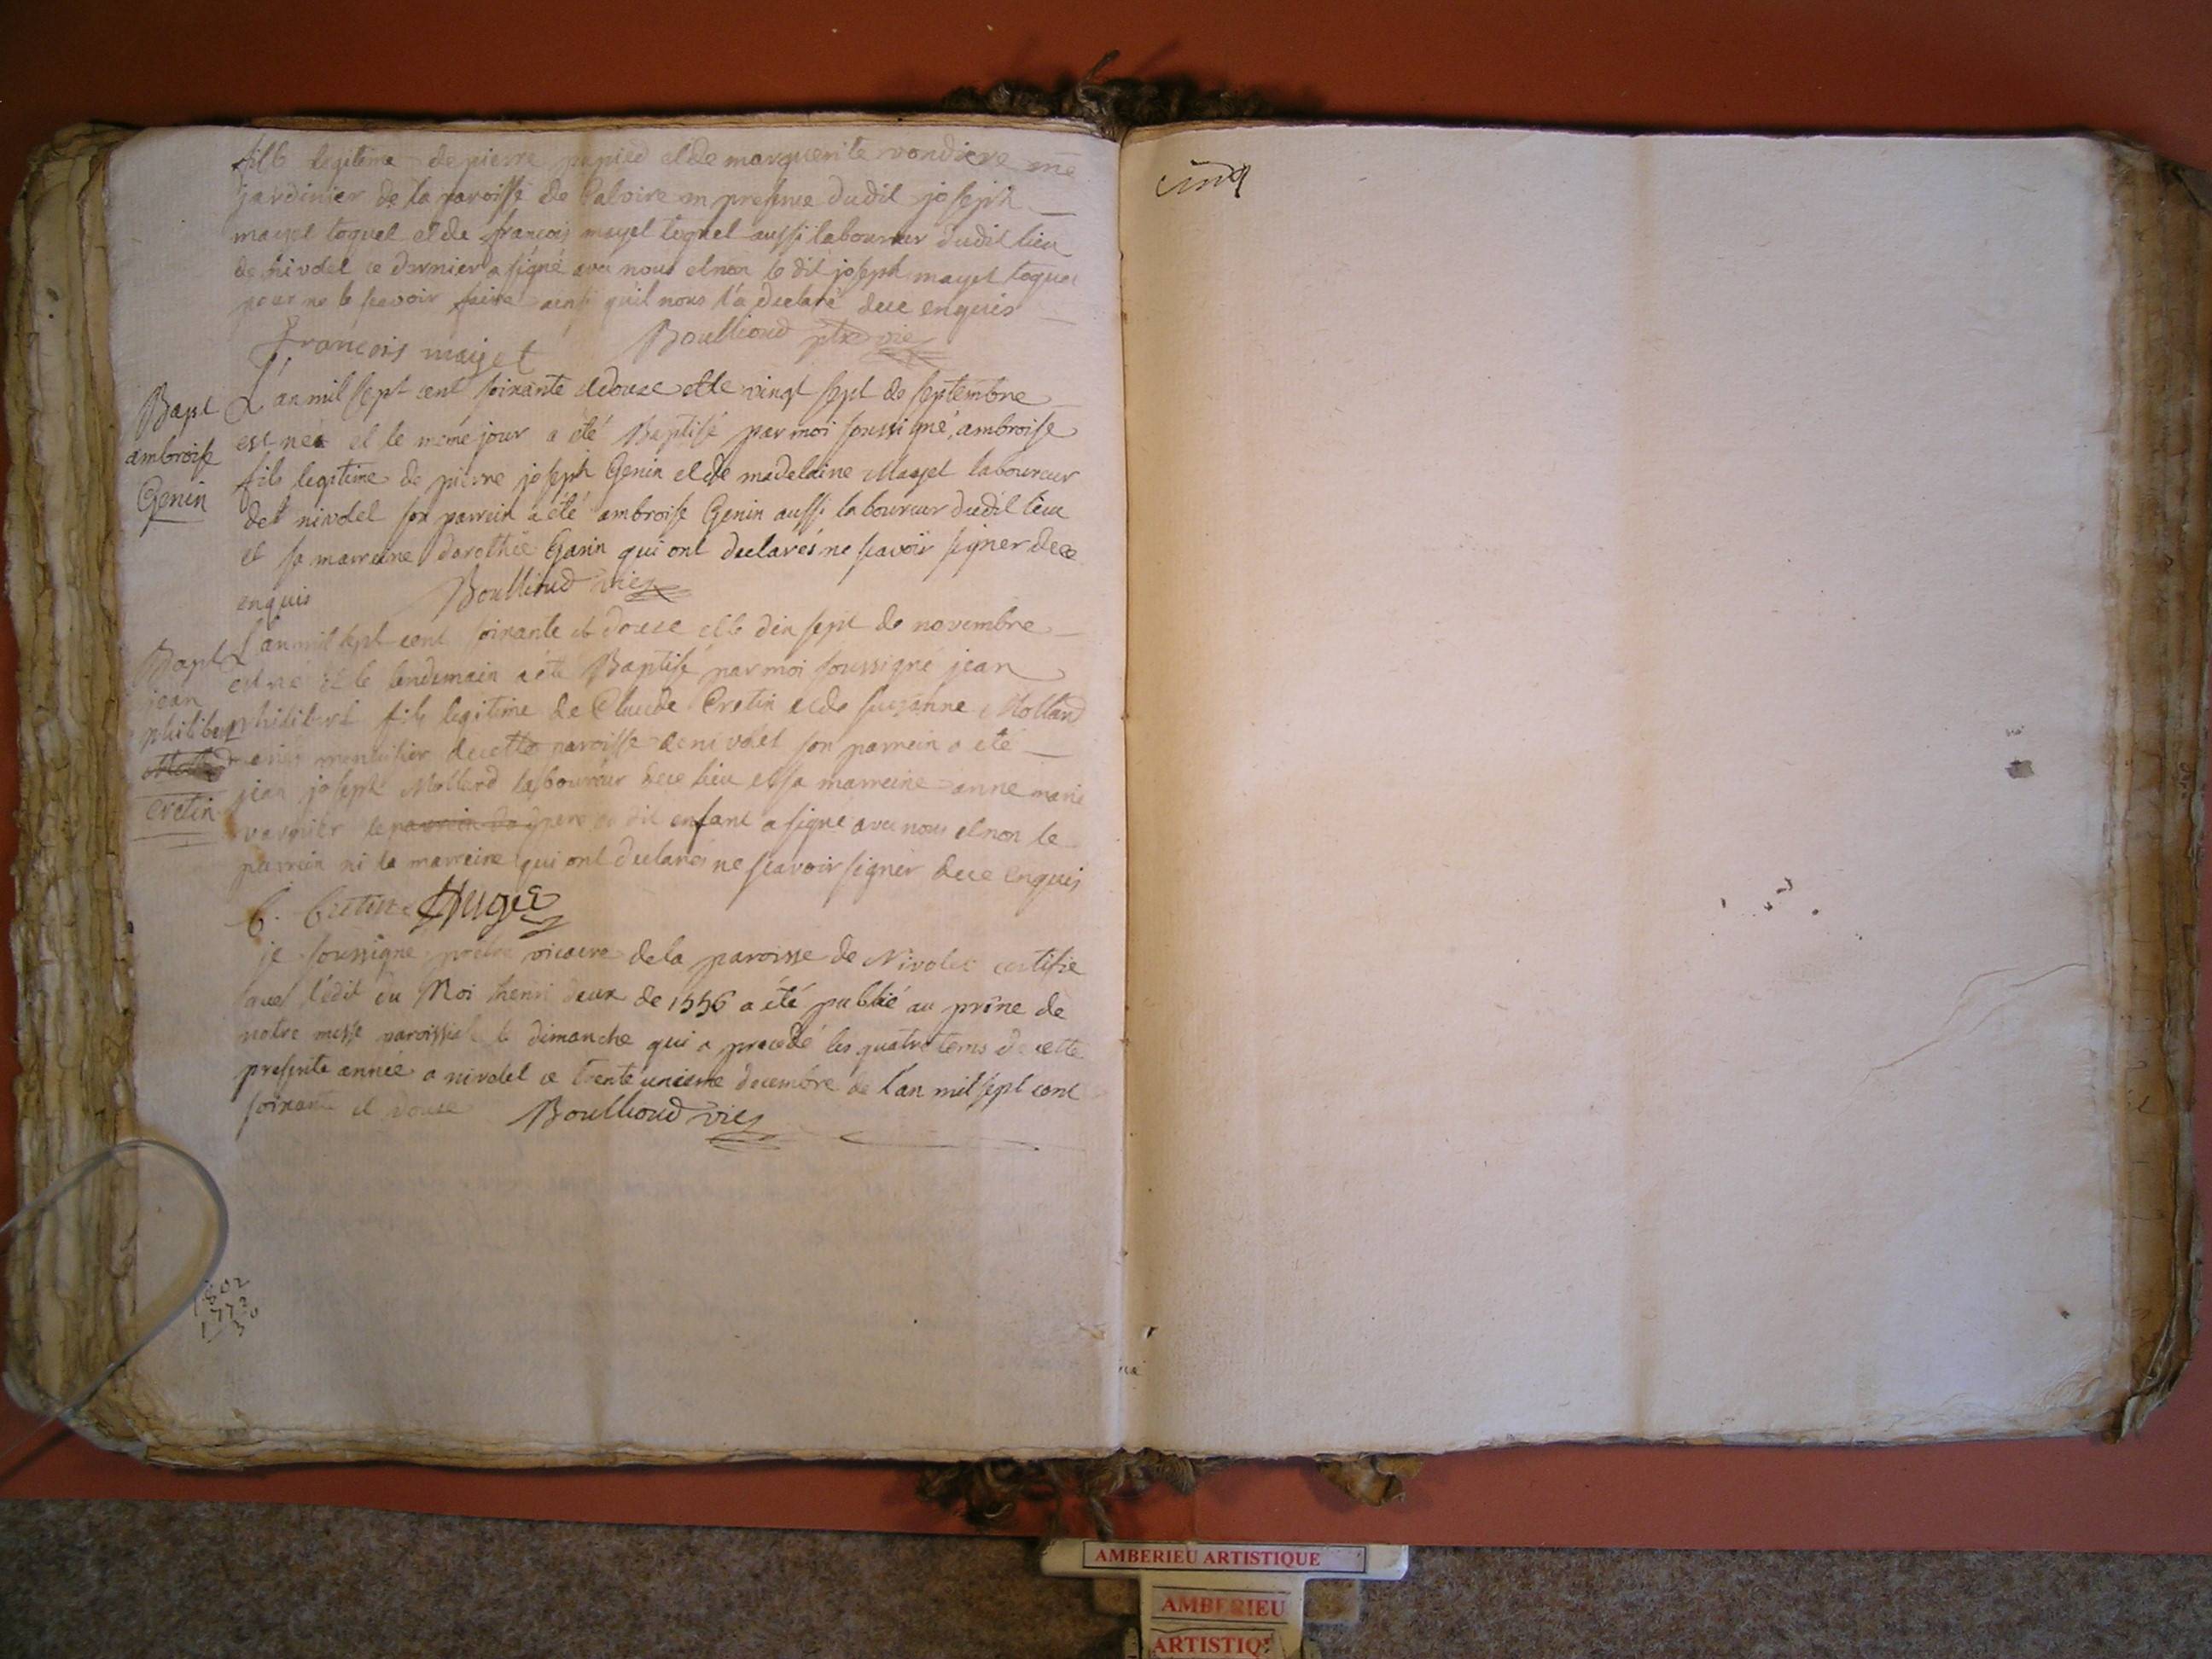 fils legitime de pierre papied et de marguerite vondiere me
jardinier de la paroisse de Caloire en presence dudit joseph
mayet toquet et de francois mayet toquet aussi laboureur dudit lieu
de nivolet ce dernier a signé avec nous et non le dit joseph mayet toquet
pour ne le scavoir faire ainsi quil nous l'a declaré de ce enquis
françois maiyet Boullioud ptre vic
Bapt
ambroise
Genin
L'an mil sept cent soixante et douze et le vingt sept de septembre
est née et le même jour a été Baptisé par moi soussigné, ambroise
fils legitime de pierre joseph Genin et de madelaine Mayet laboureur
de nivolet son parrein a été ambroise Genin aussi laboureur dudit lieu
et sa marreine dorothée Ganin qui ont declarés ne scavoir signer de ce
enquis Boullioud vic
Bapt
jean
philibert
cretin
L'an mil sept cent soixante et douze et le dix sept de novembre
est né et le lendemain a été Baptisé par moi soussigné jean
philibert fils legitime de Claude Cretin et de suzanne Mollard
menuisier de cette paroisse de nivolet son parrein a été
jean joseph Mollard laboureur de ce lieu et sa marreine anne marie
varnier le pere du dit enfant a signé avec nous et non le
parrein ni la marreine qui ont declarés ne scavoir signer de ce enquis
C. Cretin
je soussigné pretre vicaire de la paroisse de Nivolet certifie
que l'edit du Roi henri deux de 1556 a été publié au prône de
notre messe paroissiale le dimanche qui a precedé les quatre tems de cette
presente année a nivolet ce trente unieme decembre de l'an mil sept cent
soixante et douze Boullioud vic
1802
1772
30
cinq
AMBERIEU ARTISTIQUE
AMBERIEU
ARTISTIQ